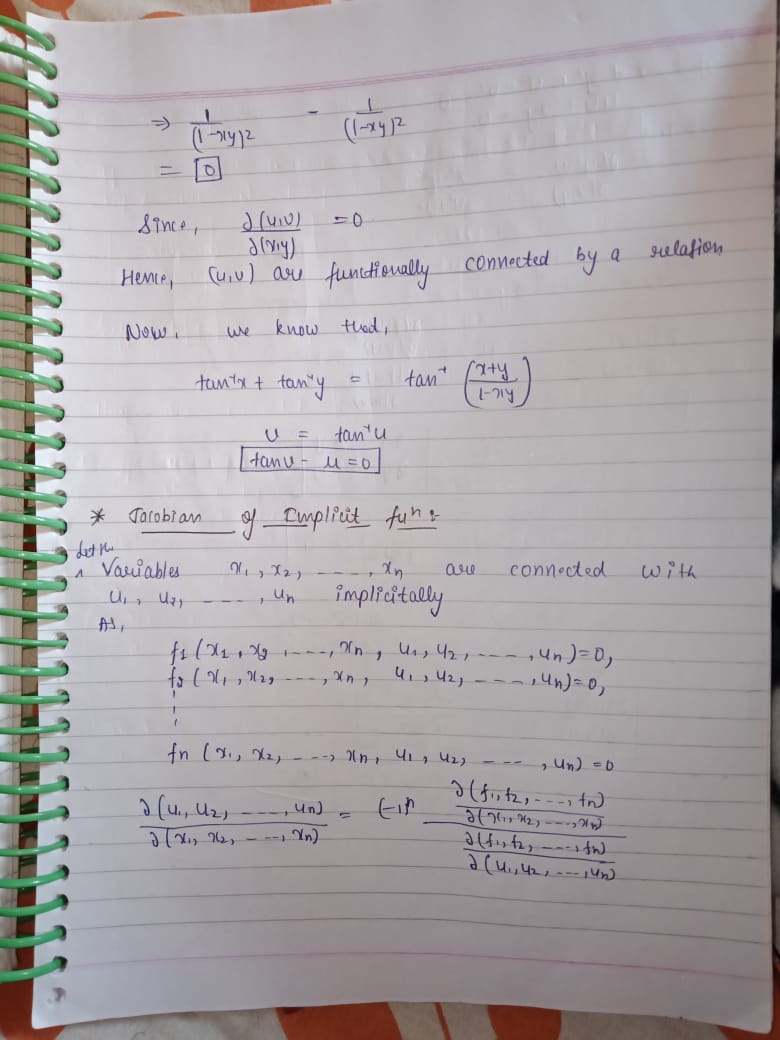 ⇒ 1/(1-xy)² - 1/(1-xy)²
= 0
Since, ∂(u,v)/∂(x,y) = 0
Hence, (u,v) are functionally connected by a relation
Now, we know that,
tan⁻¹x + tan⁻¹y = tan⁻¹ ((x+y)/(1-xy))
v = tan⁻¹u
tanv - u = 0
* Jacobian of Implicit fun :
Let the
^ Variables x₁, x₂, ----, xn are connected with
u₁, u₂, ----, un implicitally
As,
f₁ (x₁, x₂, ----, xn, u₁, u₂, ----, un) = 0,
f₂ (x₁, x₂, ----, xn, u₁, u₂, ----, un) = 0,
fn (x₁, x₂, ----, xn, u₁, u₂, ----, un) = 0
∂(u₁, u₂, ----, un)/∂(x₁, x₂, ----, xn) = (-1)ⁿ [∂(f₁, f₂, ----, fn)/∂(x₁, x₂, ----, xn)] / [∂(f₁, f₂, ----, fn)/∂(u₁, u₂, ---, un)]